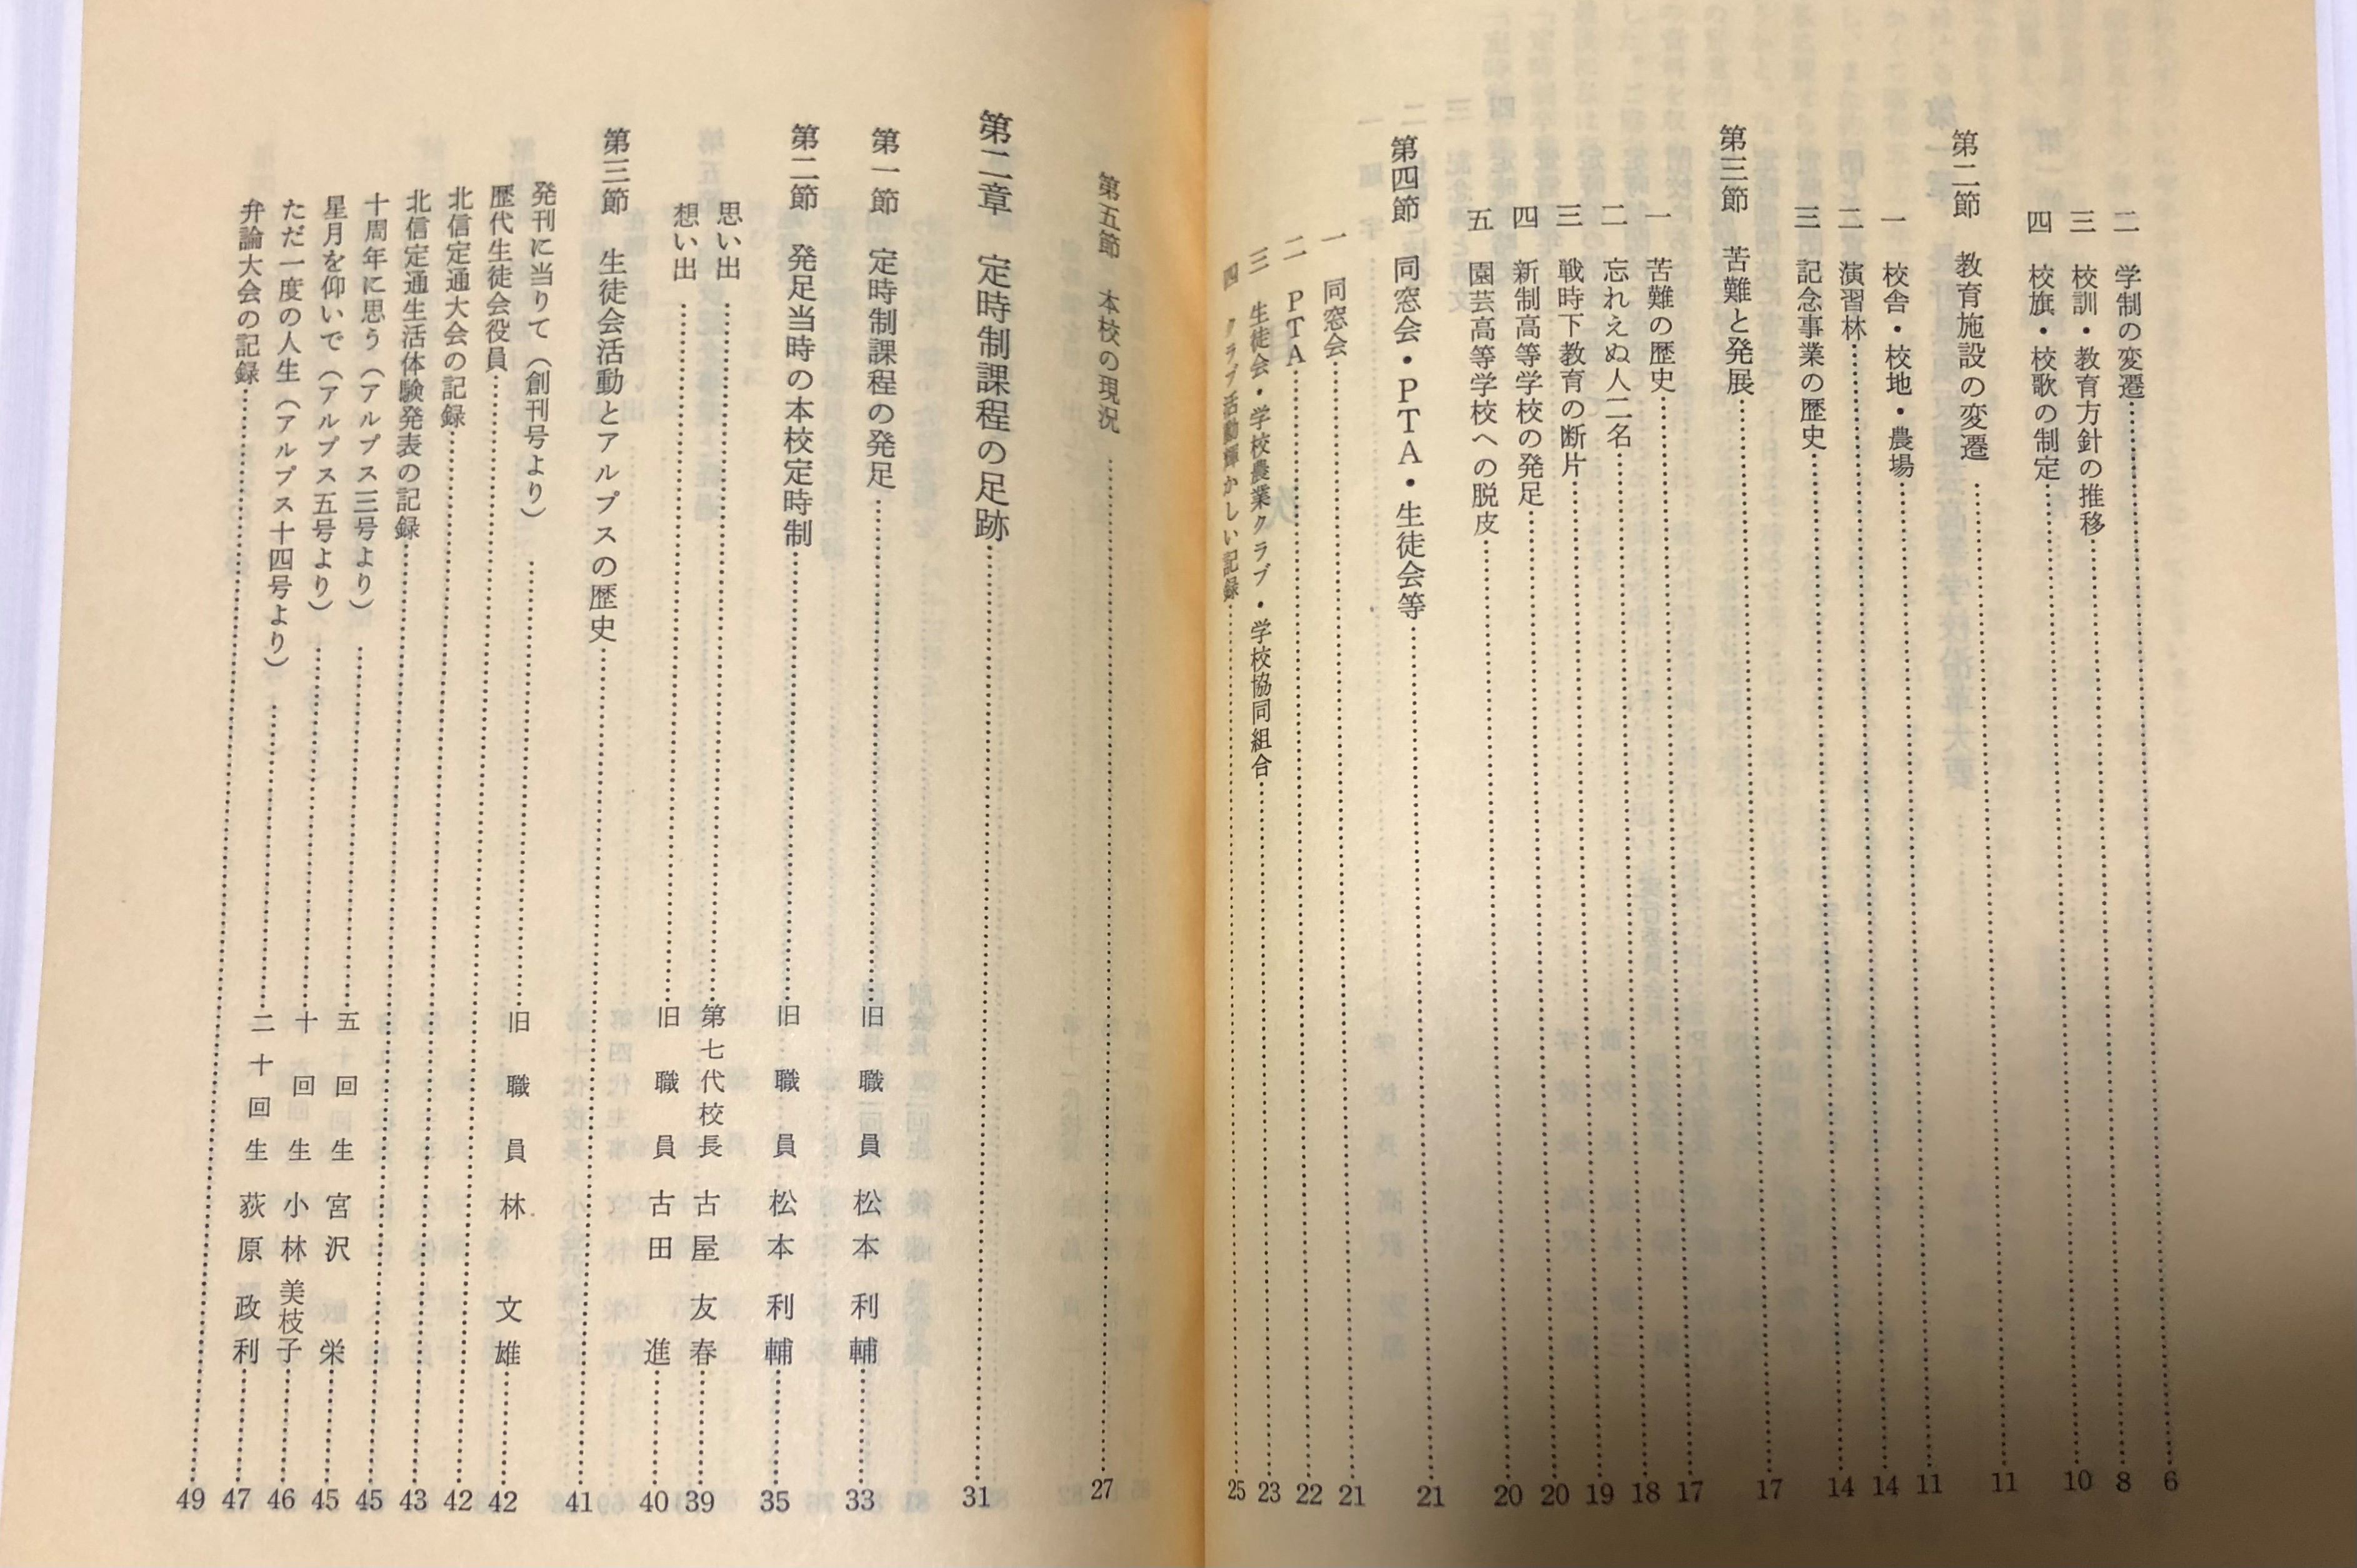 二 学制の変遷……6
三 校訓・教育方針の推移……8
四 校旗・校歌の制定……10
第二節 教育施設の変遷……11
一 校舎・校地・農場……11
二 演習林……14
三 記念事業の歴史……14
第三節 苦難と発展……17
一 苦難の歴史……17
二 忘れえぬ人二名……18
三 戦時下教育の断片……19
四 新制高等学校の発足……20
五 園芸高等学校への脱皮……20
第四節 同窓会・PTA・生徒会等……21
一 同窓会……21
二 PTA……22
三 生徒会・学校農業クラブ・学校協同組合……23
四 クラブ活動輝かしい記録……25
第五節 本校の現況……27
第二章 定時制課程の足跡……31
第一節 定時制課程の発足……旧職員 松本利輔……33
第二節 発足当時の本校定時制……旧職員 松本利輔……35
思い出……第七代校長 古屋友春……39
想い出……旧職員 古田進……40
第三節 生徒会活動とアルプスの歴史……41
発刊に当りて（創刊号より）……旧職員 林文雄……42
歴代生徒会役員……42
北信定通大会の記録……43
北信定通生活体験発表の記録……45
十周年に思う（アルプス三号より）……五回生 宮沢栄……45
星月を仰いで（アルプス五号より）……十回生 小林美枝子……46
ただ一度の人生（アルプス十四号より）……二十回生 荻原政利……47
弁論大会の記録……49